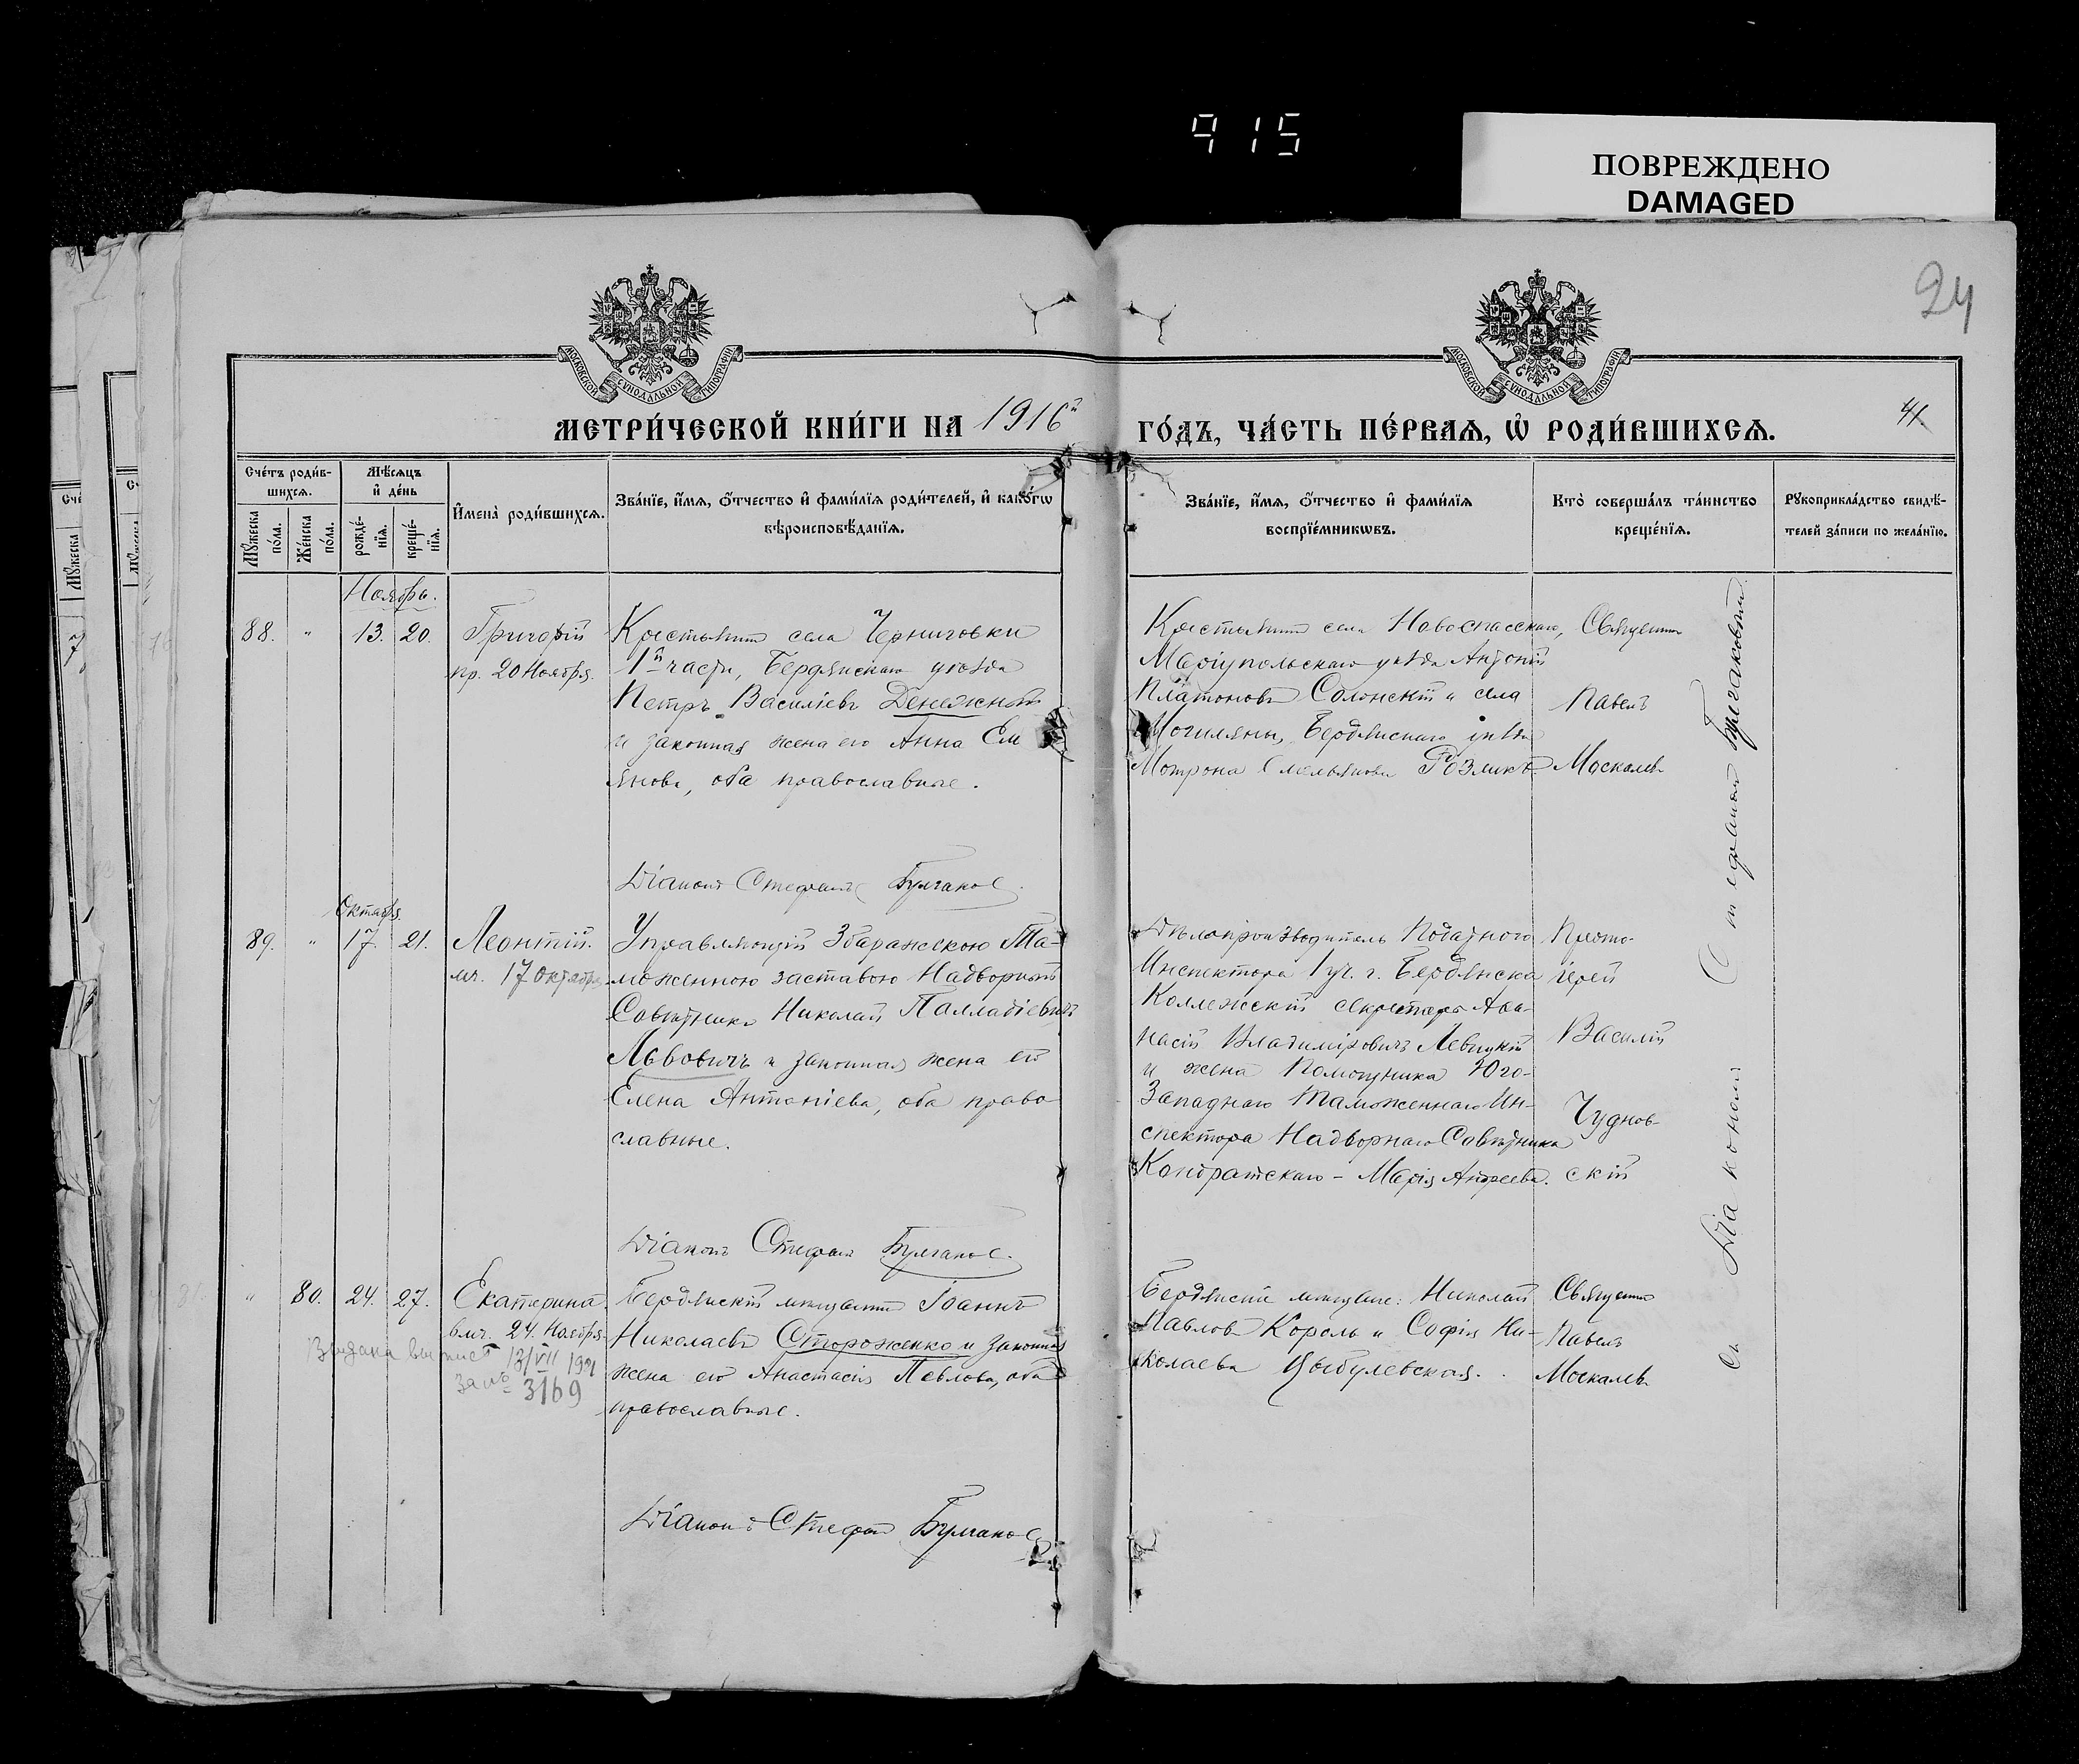 915
ПОВРЕЖДЕНО
DAMAGED
24
МОСКОВСКОЙ СѴНОДАЛЬНОЙ ТИПОГРАФІИ
МОСКОВСКОЙ СѴНОДАЛЬНОЙ ТИПОГРАФІИ
МЕТРИ́ЧЕСКОЙ КНИ́ГИ НА 1916й
ГО́ДЪ, ЧА́СТЬ ПЕ́РВАЯ, Ѡ҆ РОДИ́ВШИХСЯ.
Сче́тъ роди́в-
шихся.
Мѣ́сяцъ
и҆ де́нь
Мꙋ́жеска
по́ла.
Же́нска
по́ла.
рожде́-
нїя.
креще́-
нїя.
И҆мена̀ роди́вшихся.
Зва́нїе, и҆́мя, ѻ҆́тчество и҆ фами́лїя роди́телей, и҆ како́гѡ
вѣроисповѣ́данїя.
Зва́нїе, и҆́мя, ѻ҆́тчество и҆ фами́лїя
воспрїе́мникѡвъ.
Кто̀ соверша́лъ та́инство
креще́нїя.
Рꙋкоприкла́дство свидѣ́-
телей за́писи по жела́нїю.
Ноябрь.
88. " 13. 20. Григорій
пр. 20 Ноября.
Крестьянинъ села Черниговки
1й части, Бердянскаго уѣзда
Петръ Василіевъ Денежный
и законная жена его Анна Ем
янова, оба православные.
Діаконъ Стефанъ Булгаковъ
Крестьянинъ села Новоспасскаго,
Маріупольскаго уѣзда Антоній
Платоновъ Солонскій и села
Могиляны, Бердянскаго уѣзда
Мотрона Емельянова
Священникъ
Павелъ
Москалевъ
Октября.
89. " 17. 21. Леонтій.
мч. 17 Октября.
Управляющій Збаражскою Та-
моженною заставою Надворный
Совѣтникъ Николай Палладіевичъ
Львовичъ и законная жена его
Елена Антоніева, оба право
славные.
Діаконъ Стефанъ Булгаковъ.
Дѣлопроизводитель Податного
Инспектора 1 уч. г. Бердянска
Коллежскій секретарь Афа-
насій Владиміровичъ Левицкій
и жена Помощника Юго-
Западнаго Таможеннаго Ин-
спектора Надворнаго Совѣтника
Кондратскаго - Марія Андреева.
Прото-
іерей
Василій
Чуднов-
скій
" 80. 24. 27. Екатерина.
вмч. 24. Ноября.
Выдана выпись 13/VII
за № 3169
Бердянскій мѣщанинъ Іоаннъ
Николаевъ Стороженко и законная
жена его Анастасія Павлова, оба
православные.
Діаконъ Стефанъ Булгаковъ
Бердянскіе мѣщане: Николай
Павловъ Король и Софія Ни-
колаева Цыбулевская.
Священникъ
Павелъ
Москалевъ
Съ Діакономъ Стефаномъ Булгаковымъ